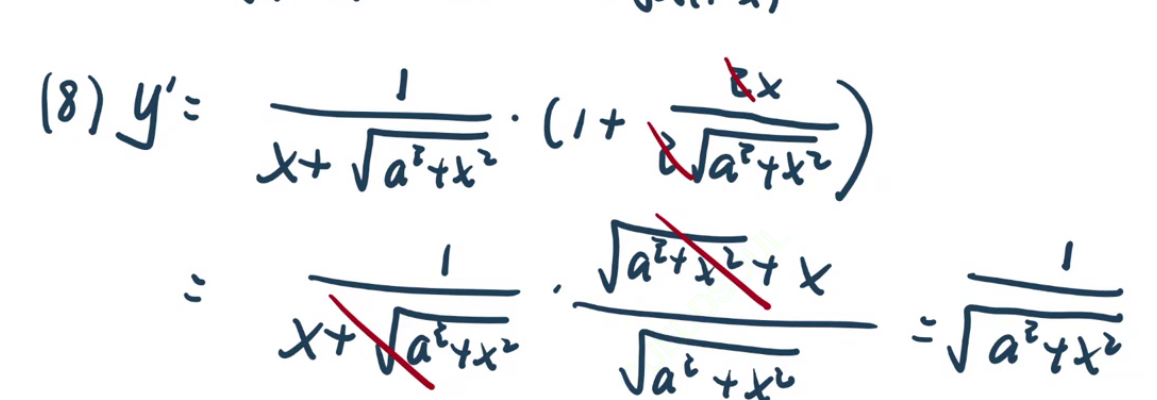 (8) y' = 1/(x+√(a²+x²)) · (1 + 2x/(2√(a²+x²)))
= 1/(x+√(a²+x²)) · (√(a²+x²)+x)/√(a²+x²) = 1/√(a²+x²)